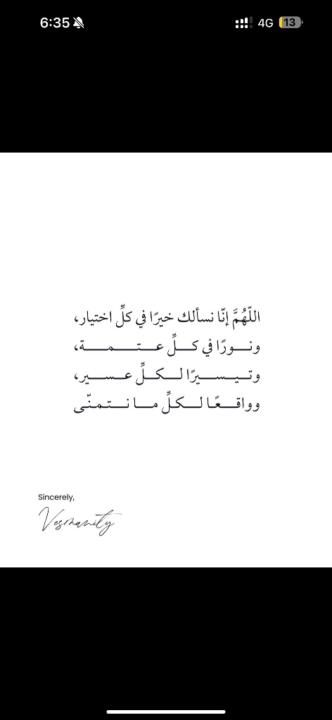 6:35
4G
13
اللّهُمَّ إنّا نسألك خيرًا في كلِّ اختيار،
ونورًا في كلِّ عتمة،
وتيسيرًا لكلِّ عسير،
وواقعًا لكلِّ ما نتمنّى
Sincerely,
Vesmanity